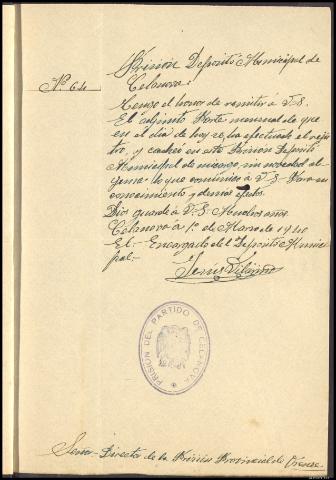 Prision Deposito Municipal de
Nº 64
Celanova:
Tengo el honor de remitir á V.S.
El adjunto Parte mensual de que
en el dia de hoy se ha efectuado el rejis
tro, y cacheo en este Prision Deposito
Municipal de mi cargo, sin novedad al
guna. lo que comunico á V.S. Para su
conocimiento y demas efectos.
Dios guarde á V.S. Muchos años
Celanova á 1º de Marzo de 1940
El Encargado del Deposito Munic
pal.-
Jesús
PRISIÓN DEL PARTIDO DE CELANOVA
Señor Director de la Prision Provincial de Orense.